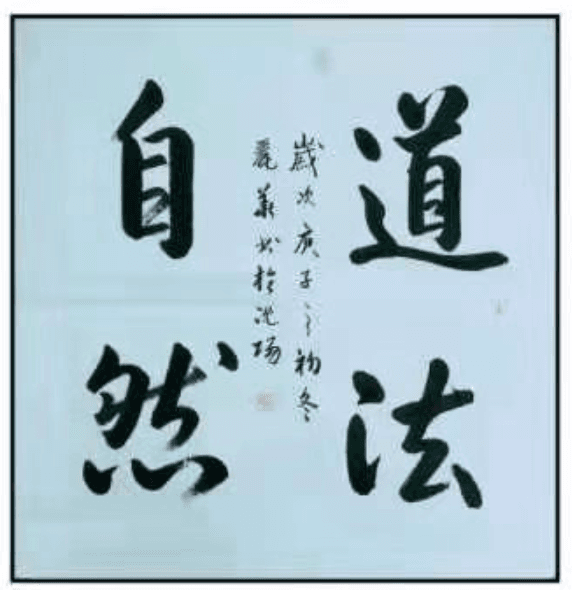 道法
自然
歲次庚子之初冬
麗華書於沈陽